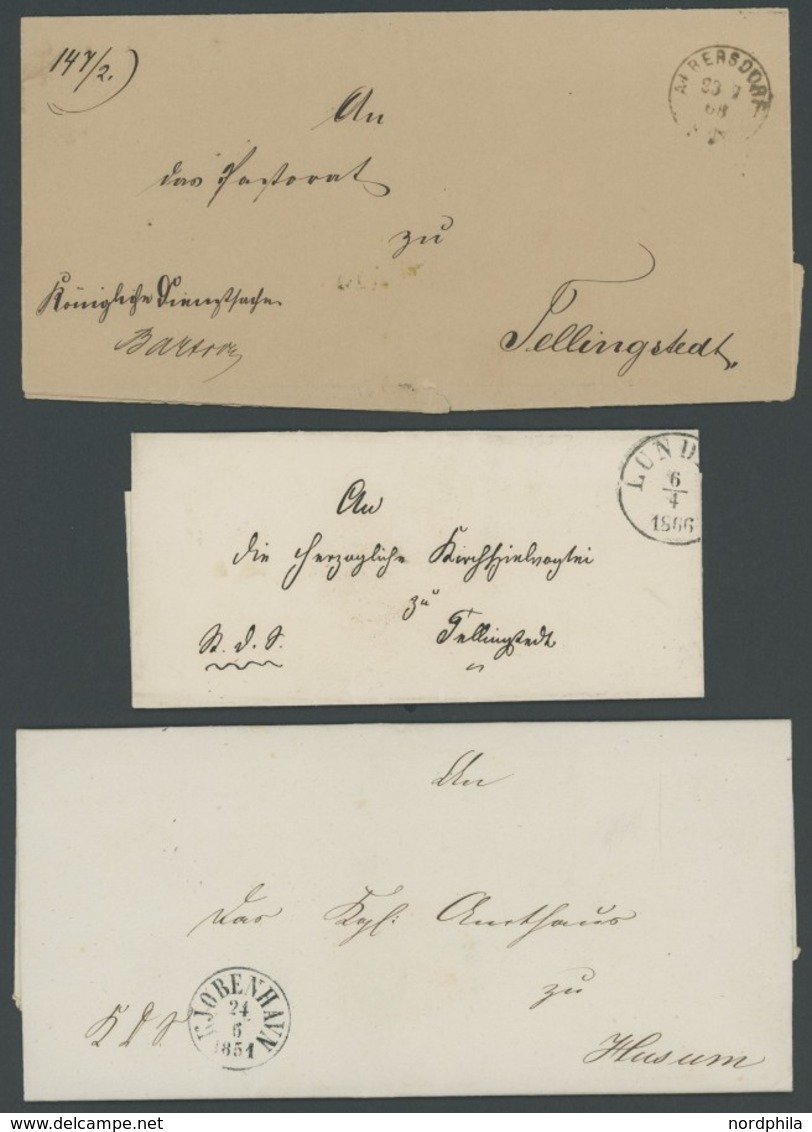 147/2.
ALBERSDORF
68
An
das Pastorat
zu
Königliche Dienstsache
Tellingstedt
LUND
6
4
1866
An
die Herzogliche Kirchspielvogtei
zu
St. d. S.
Tellingstedt
An
Das Kgl: Amthaus
KJØBENHAVN
24
6
1851
zu
K D S
Husum
www.delcampe.net
nordphila